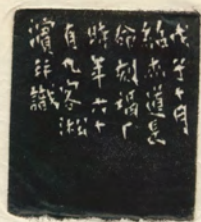 戊子十月
紹杰道長
命刻福厂
時年六十
有九客淞
濱并識